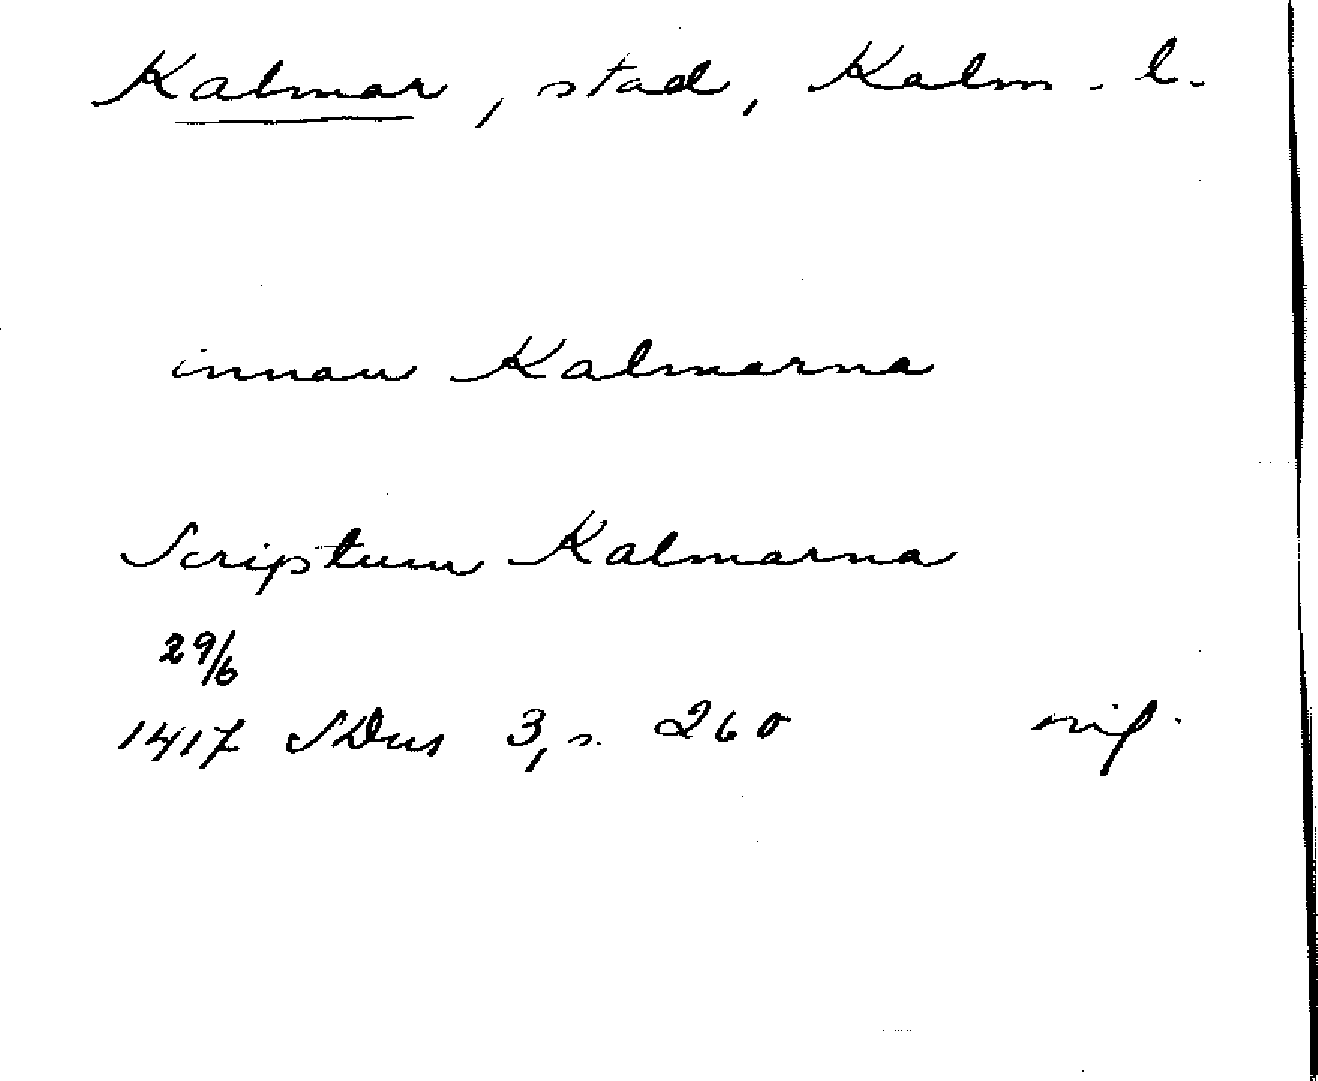 Kalmar, stad, Kalm. l.
innan Kalmarna
Scriptum Kalmarna
29/6
1417 SDns 3, s. 260